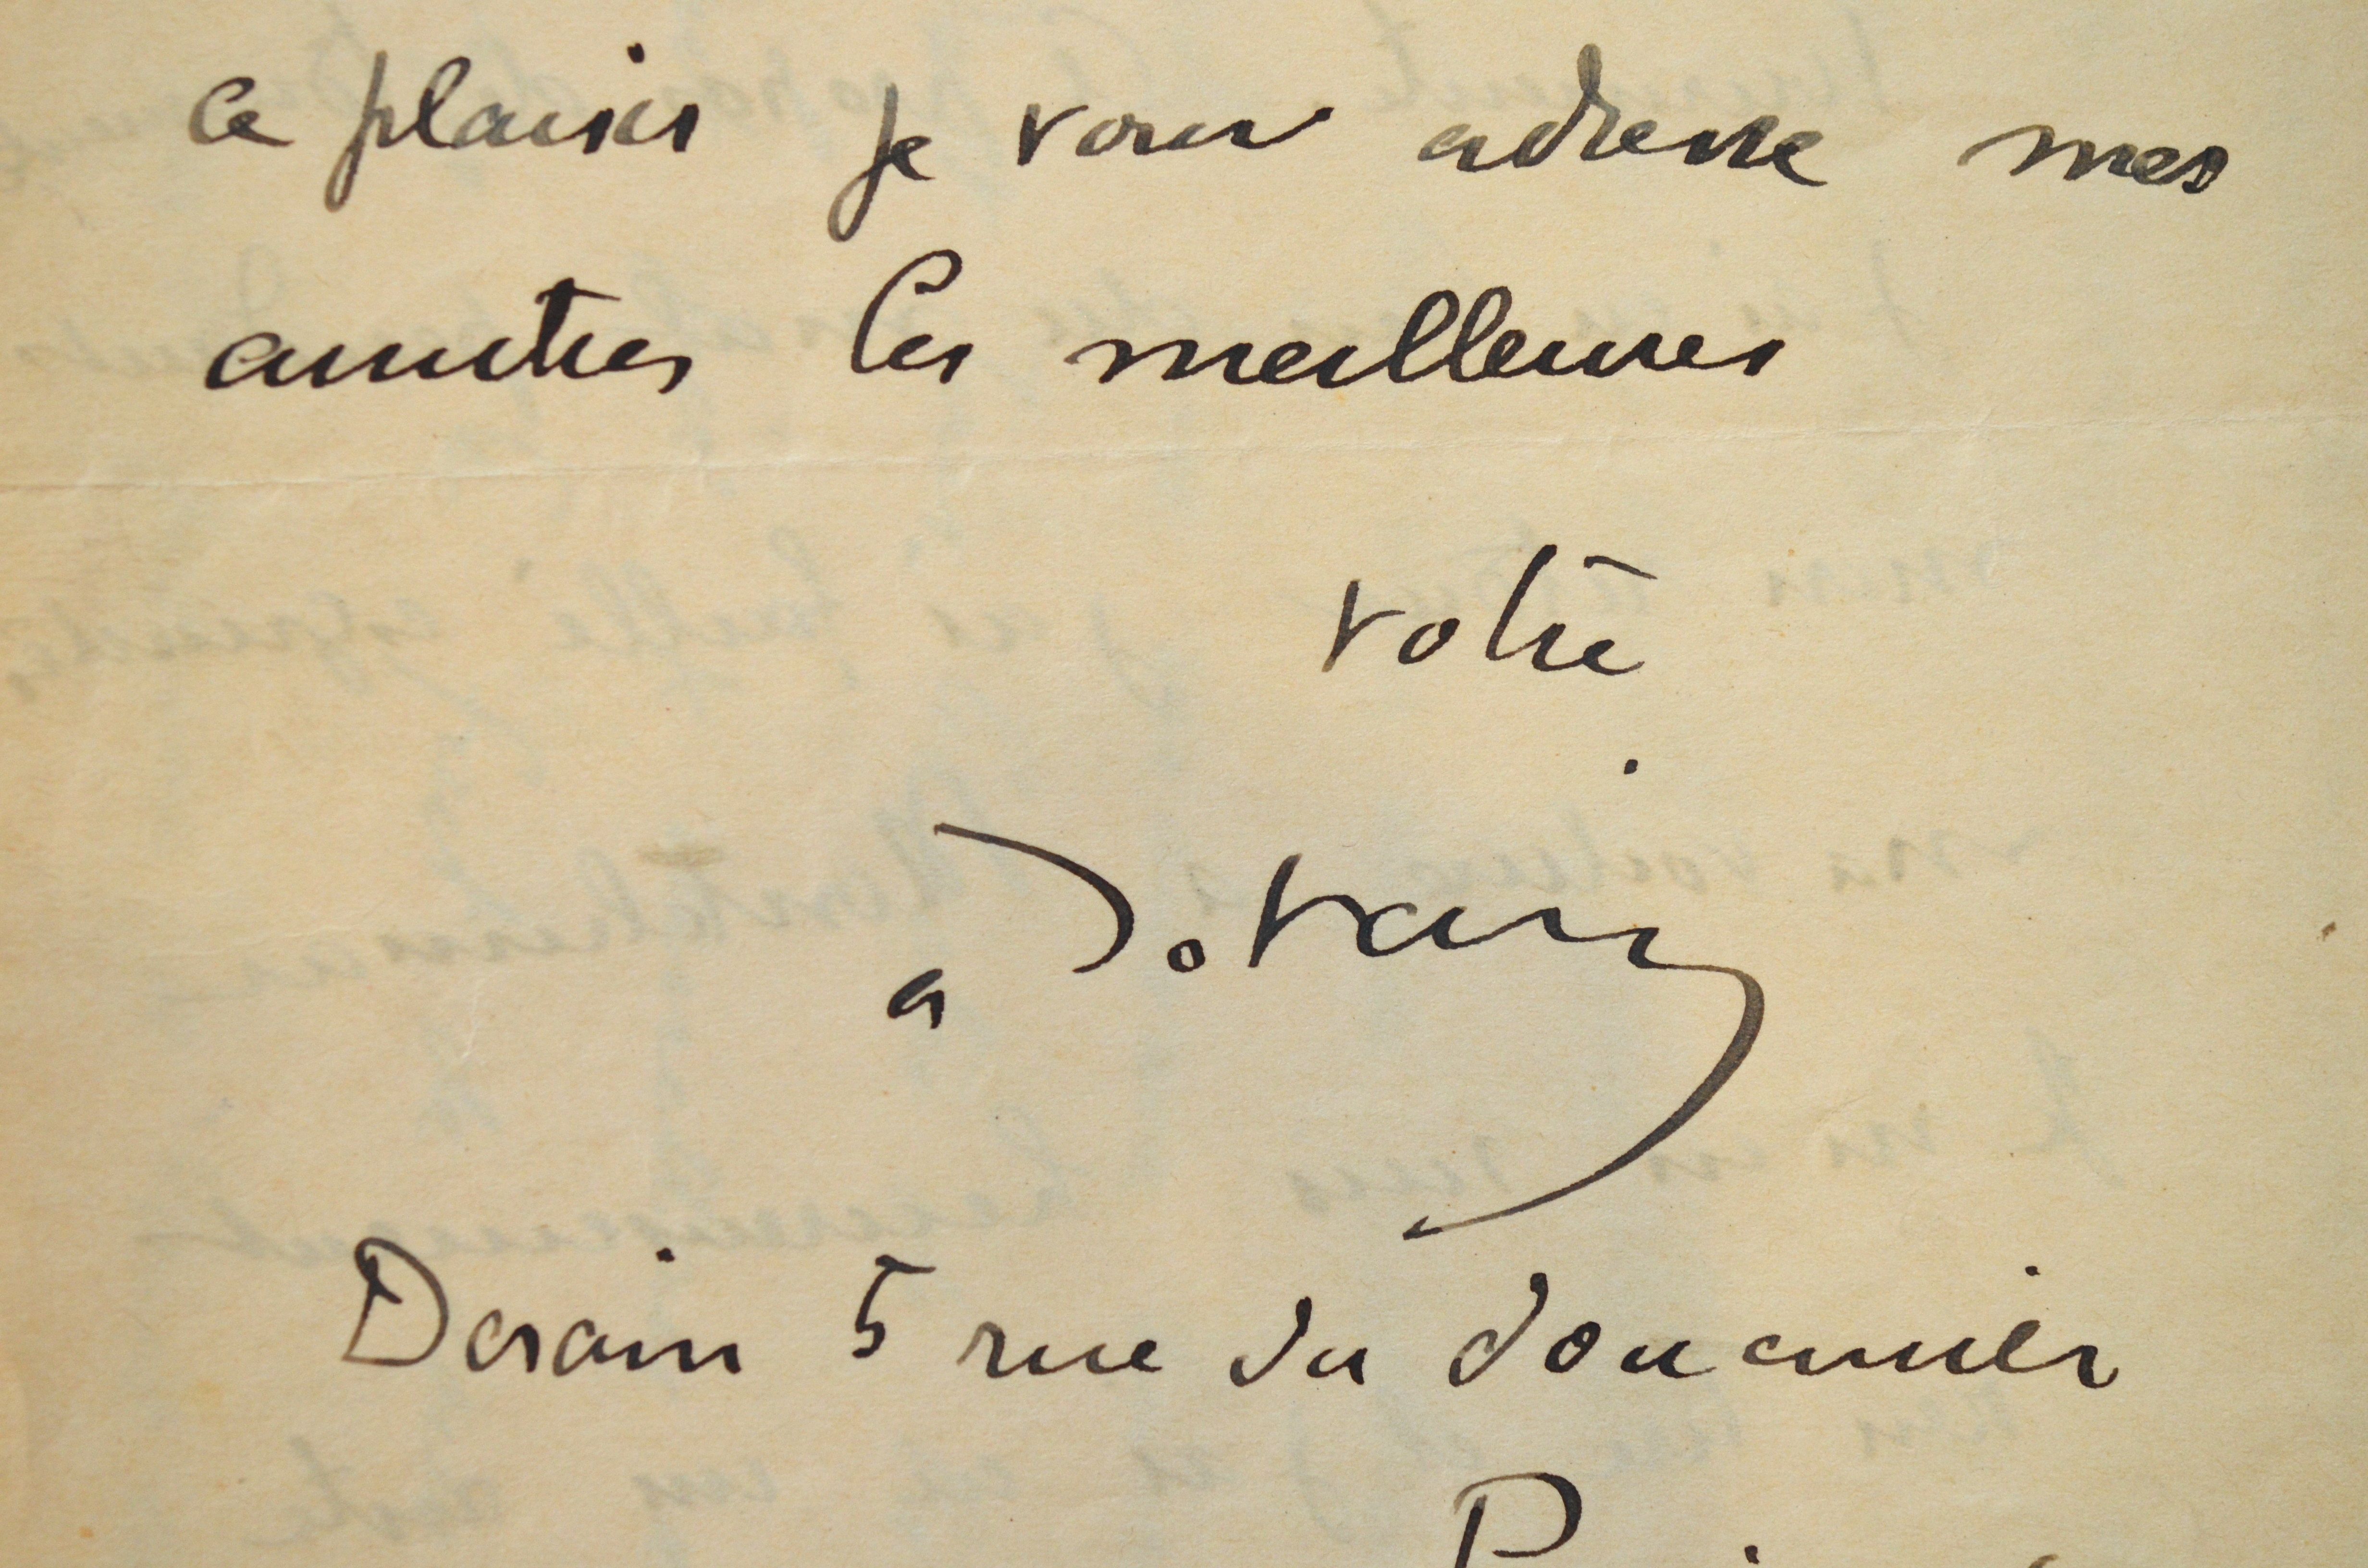 ce plaisir je vous adresse mes
amities les meilleures
votre
a Derain
Derain 5 rue du douanier